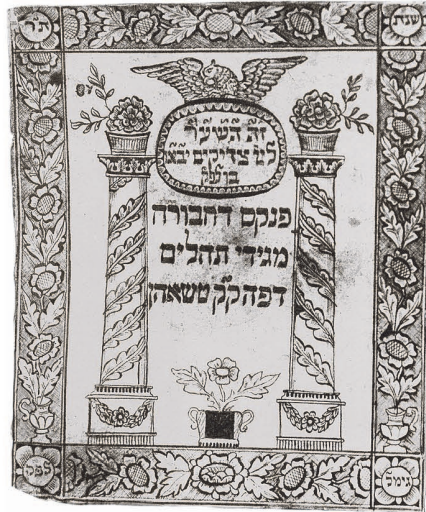 שנת
ת'ר'
זה השער
לה' צדיקים יבאו
בו
פנקס דחבורה
מגידי תהלים
דפה ק"ק טשאהן
לפ"ק